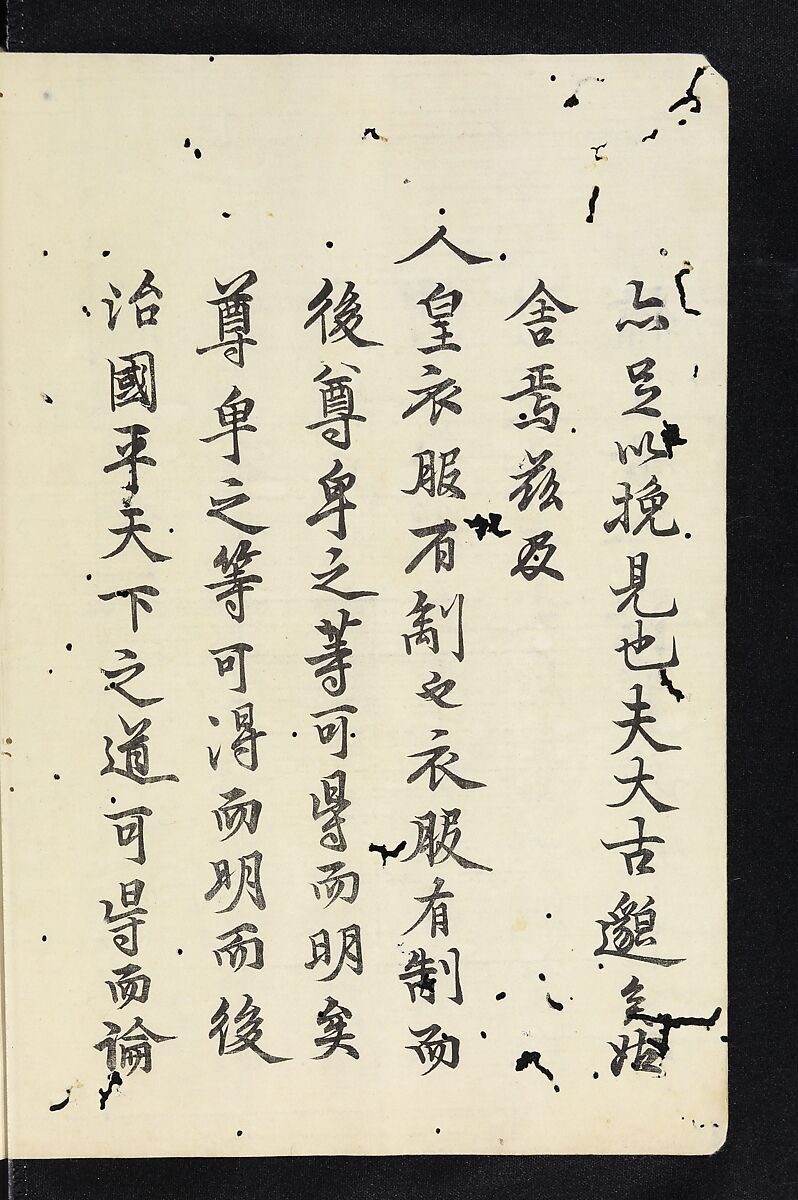 亦足以挽見也夫大古邈矣姑
舍焉茲及
人皇衣服有制也衣服有制而
後尊卑之等可得而明矣
尊卑之等可得而明而後
治國平天下之道可得而論